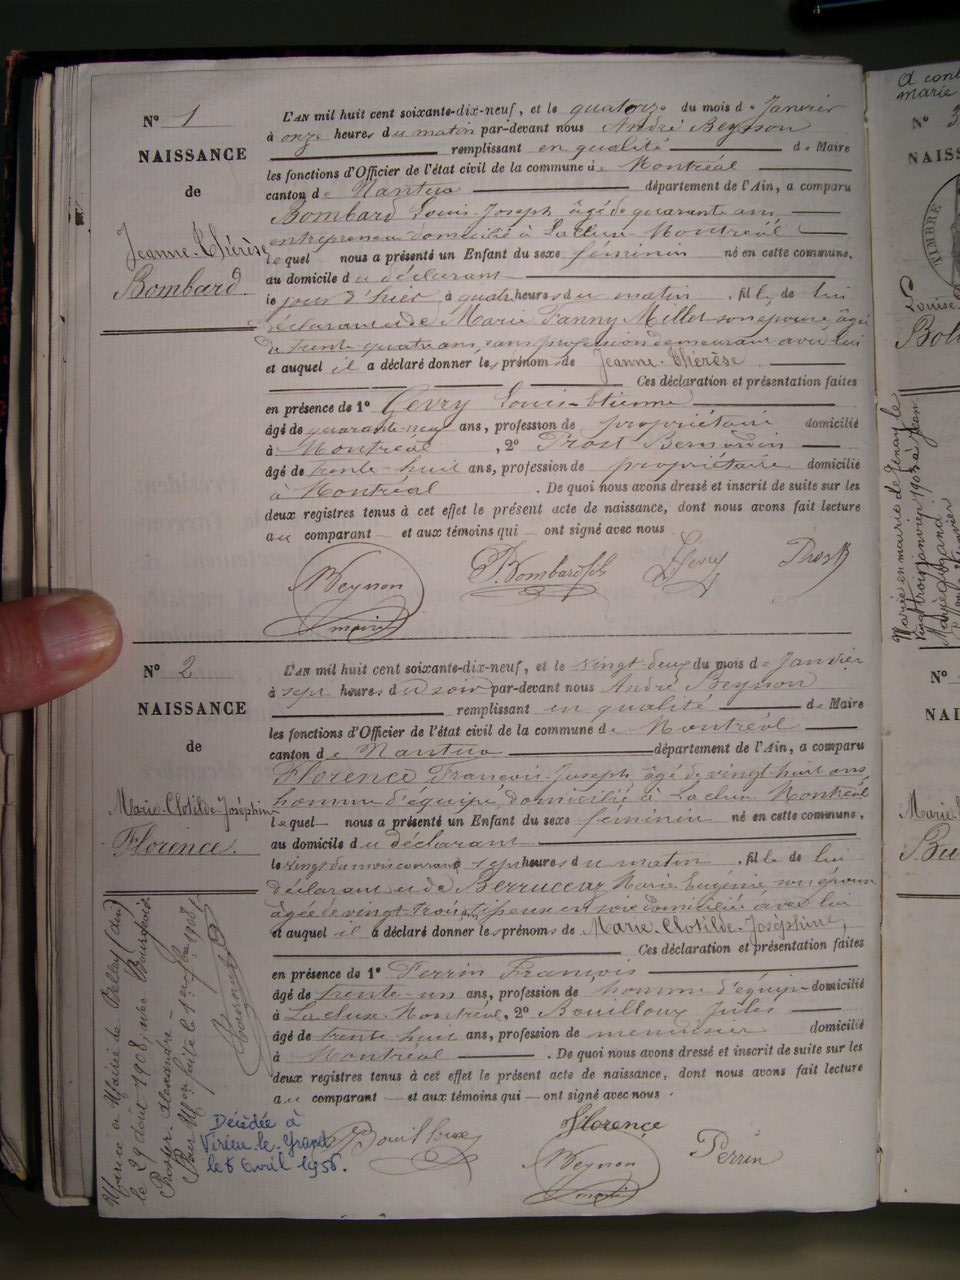 N° 1
NAISSANCE
de
Jeanne-Thérèse
Bombard
L'AN mil huit cent soixante-dix-neuf, et le quatorze du mois de Janvier
à onze heures du matin par-devant nous André Beysson
remplissant en qualité de Maire
les fonctions d'Officier de l'état civil de la commune de Montréal
canton de Nantua département de l'Ain, a comparu
Bombard Louis-Joseph âgé de quarante ans
entrepreneur domicilié à La Cluse Montréal
lequel nous a présenté un Enfant du sexe féminin né en cette commune,
au domicile du déclarant
le jour d'hier, à quatre heures du matin, fille de lui
déclarant et de Marie Fanny Millet son épouse âgée
de trente quatre ans, sans profession demeurant avec lui
et auquel il a déclaré donner les prénoms de Jeanne-Thérèse
Ces déclaration et présentation faites
en présence de 1° Gevry Louis-Etienne
âgé de quarante-neuf ans, profession de propriétaire domicilié
à Montréal, 2° Prost Bernardin
âgé de trente-huit ans, profession de propriétaire domicilié
à Montréal. De quoi nous avons dressé et inscrit de suite sur les
deux registres tenus à cet effet le présent acte de naissance, dont nous avons fait lecture
au comparant et aux témoins qui ont signé avec nous
Beysson Bombard fils Gevry Prost
maire
N° 2
NAISSANCE
de
Marie-Clotilde-Joséphine
Florence.
L'AN mil huit cent soixante-dix-neuf, et le vingt deux du mois de Janvier
à sept heures du soir par-devant nous André Beysson
remplissant en qualité de Maire
les fonctions d'Officier de l'état civil de la commune de Montréal
canton de Nantua département de l'Ain, a comparu
Florence François-Joseph, âgé de vingt-huit ans,
homme d'équipe, domicilié à La Cluse Montréal
lequel nous a présenté un Enfant du sexe féminin né en cette commune,
au domicile du déclarant
le vingt du mois courant à sept heures du matin, fille de lui
déclarant et de Berruccaz Marie Eugénie son épouse
âgée de vingt-trois ans, tisseuse en soie domiciliée avec lui
et auquel il a déclaré donner les prénoms de Marie-Clotilde-Joséphine,
Ces déclaration et présentation faites
en présence de 1° Perrin François
âgé de trente-un ans, profession de homme d'équipe domicilié
à La Cluse Montréal, 2° Bouilloux Jules
âgé de trente huit ans, profession de menuisier domicilié
à Montréal. De quoi nous avons dressé et inscrit de suite sur les
deux registres tenus à cet effet le présent acte de naissance, dont nous avons fait lecture
au comparant et aux témoins qui ont signé avec nous.
Bouilloux Florence Perrin
Beysson
maire
Mariée à Mairie de Belley (Ain)
le 29 août 1908, avec
Alexandre
Pour Mon faite le 1er 7bre 1908
Décédée à
Virieu-le-Grand
le 8 Avril 1956.
A
marie
N° 3
NAISS
TIMBRE
Louise
Mariée en mairie de le
vingt trois janvier 1903 à Jean
N°
NAI
Marie
Bu